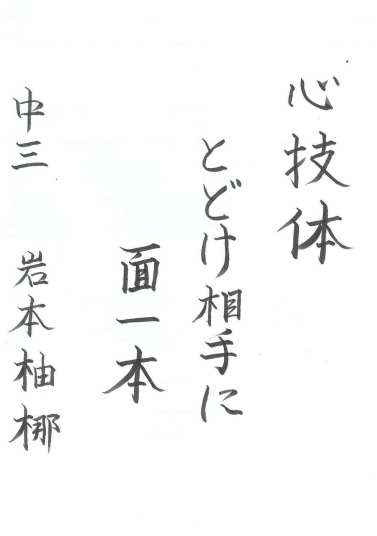 心技体
とどけ相手に
面一本
中三 岩本柚梛